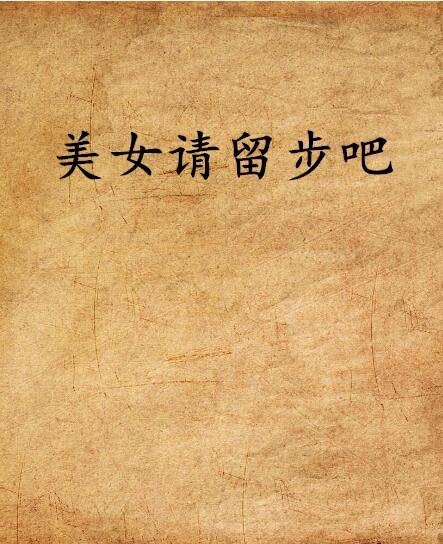 美女请留步吧